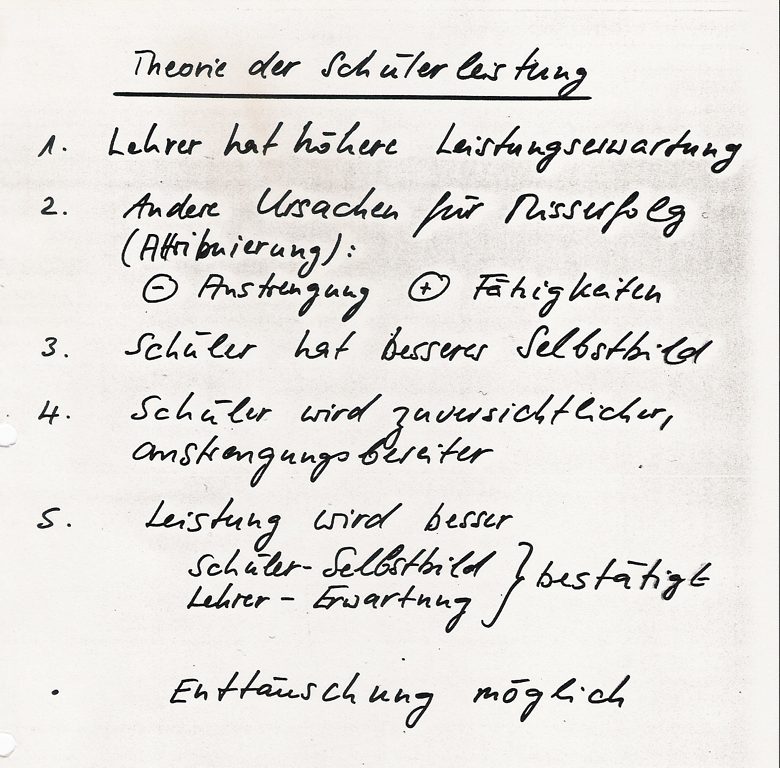 Theorie der Schülerleistung
1. Lehrer hat höhere Leistungserwartung
2. Andere Ursachen für Misserfolg
(Attribuierung):
⊖ Anstrengung ⊕ Fähigkeiten
3. Schüler hat besseres Selbstbild
4. Schüler wird zuversichtlicher,
anstrengungsbereiter
5. Leistung wird besser
Schüler-Selbstbild
Lehrer-Erwartung } bestätigt
• Enttäuschung möglich